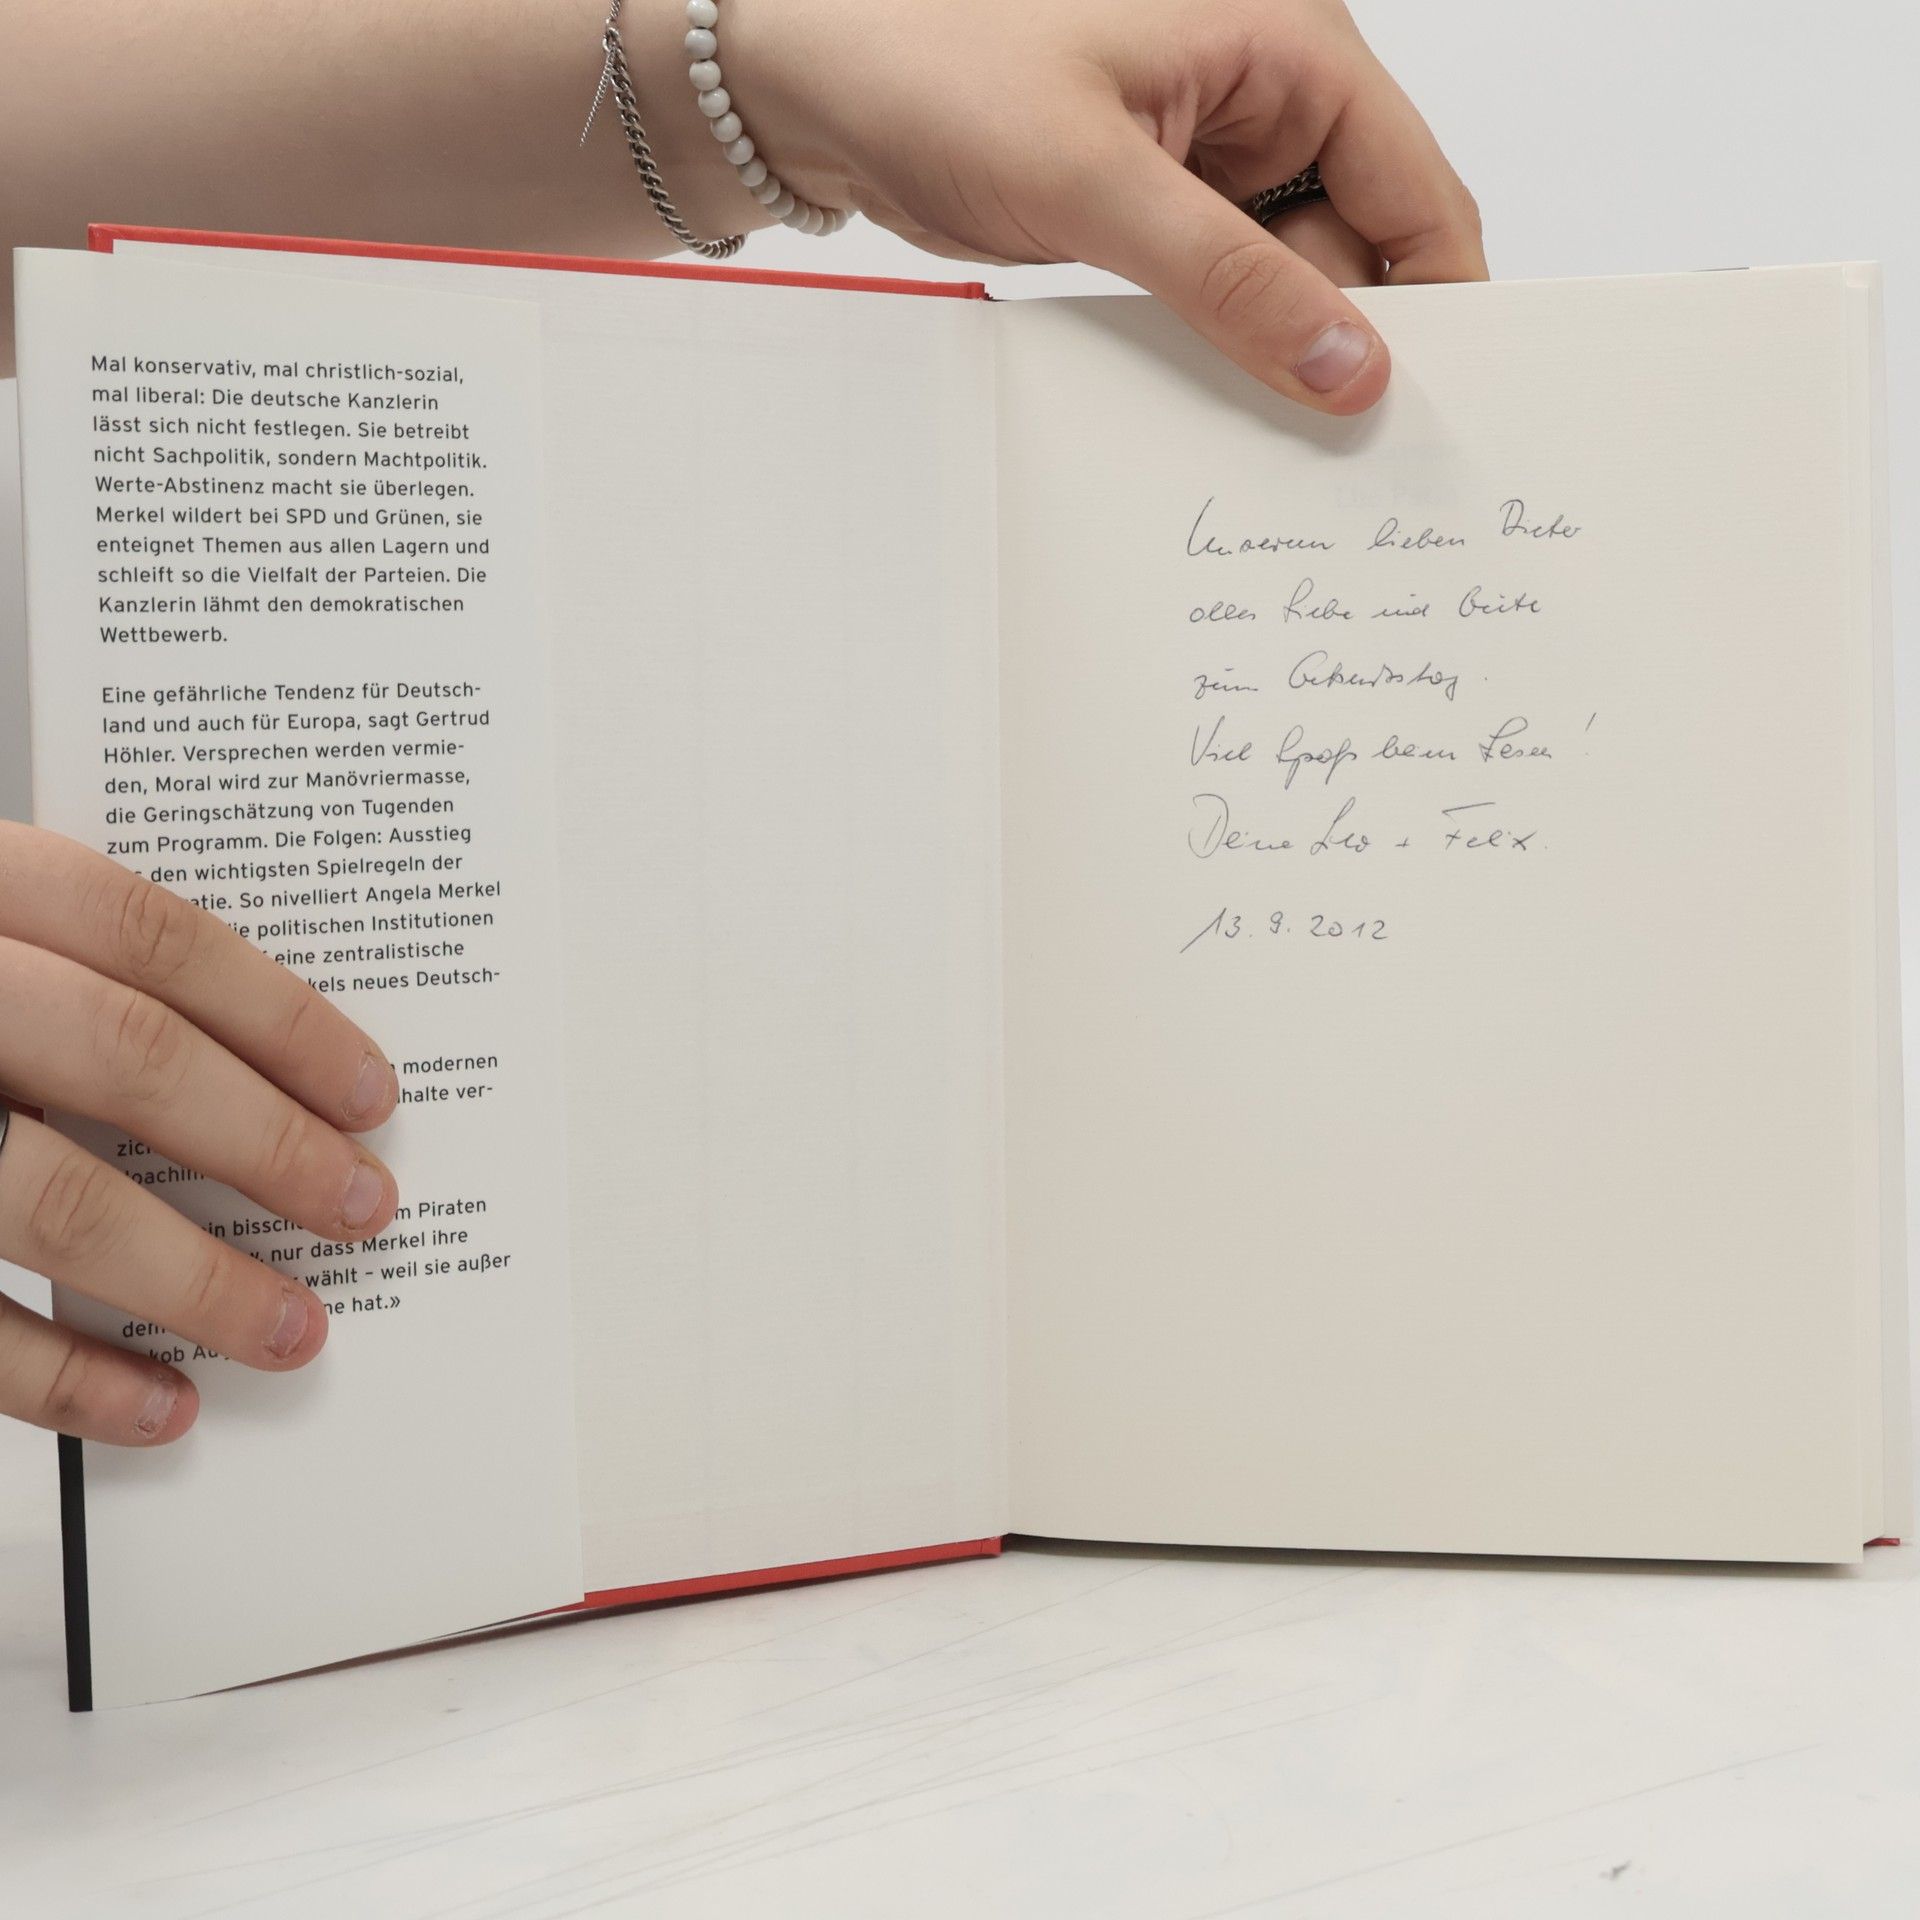 Mal konservativ, mal christlich-sozial,
mal liberal: Die deutsche Kanzlerin
lässt sich nicht festlegen. Sie betreibt
nicht Sachpolitik, sondern Machtpolitik.
Werte-Abstinenz macht sie überlegen.
Merkel wildert bei SPD und Grünen, sie
enteignet Themen aus allen Lagern und
schleift so die Vielfalt der Parteien. Die
Kanzlerin lähmt den demokratischen
Wettbewerb.
Eine gefährliche Tendenz für Deutsch-
land und auch für Europa, sagt Gertrud
Höhler. Versprechen werden vermie-
den, Moral wird zur Manövriermasse,
die Geringschätzung von Tugenden
zum Programm. Die Folgen: Ausstieg
den wichtigsten Spielregeln der
So nivelliert Angela Merkel
politischen Institutionen
eine zentralistische
neues Deutsch-
modernen
ver-
bissch
m Piraten
nur dass Merkel ihre
wählt – weil sie außer
hat.»
Unserem lieben Dieter
alles Liebe und Gute
zum Geburtstag.
Viel Spaß beim Lesen!
Deine Leo + Felix.
13.9.2012